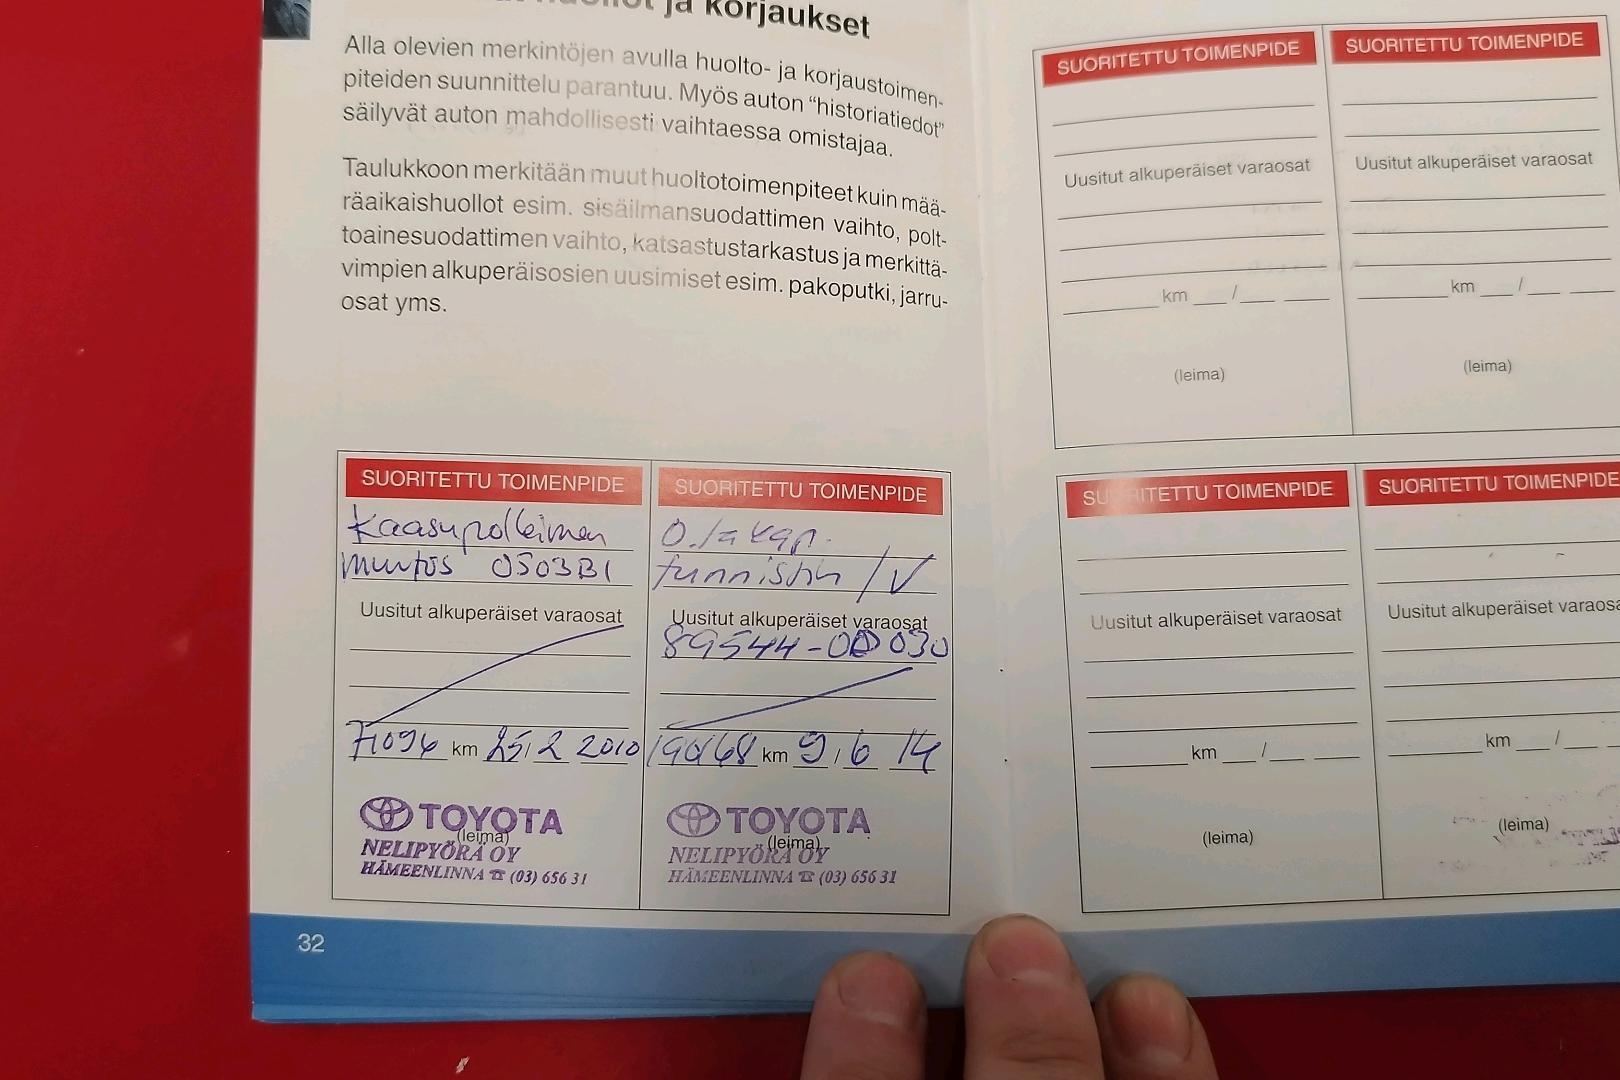 ja korjaukset
Alla olevien merkintöjen avulla huolto- ja korjaustoimen-
piteiden suunnittelu parantuu. Myös auton “historiatiedot”
säilyvät auton mahdollisesti vaihtaessa omistajaa.
Taulukkoon merkitään muut huoltotoimenpiteet kuin mää-
räaikaishuollot esim. sisäilmansuodattimen vaihto, polt-
toainesuodattimen vaihto, katsastustarkastus ja merkittä-
vimpien alkuperäisosien uusimiset esim. pakoputki, jarru-
osat yms.
SUORITETTU TOIMENPIDE
Kaasupolkimen
muutos 0503B1
Uusitut alkuperäiset varaosat
71094 km 25/2 2010
TOYOTA
(leima)
NELIPYÖRÄ OY
HÄMEENLINNA ☎ (03) 656 31
SUORITETTU TOIMENPIDE
tunnistin /V
Uusitut alkuperäiset varaosat
km 9/6 14
TOYOTA
(leima)
NELIPYÖRÄ OY
HÄMEENLINNA ☎ (03) 656 31
32
SUORITETTU TOIMENPIDE
Uusitut alkuperäiset varaosat
km /
(leima)
SUORITETTU TOIMENPIDE
Uusitut alkuperäiset varaosat
km /
(leima)
SUORITETTU TOIMENPIDE
Uusitut alkuperäiset varaosat
km /
(leima)
SUORITETTU TOIMENPIDE
Uusitut alkuperäiset varaosa
km /
(leima)